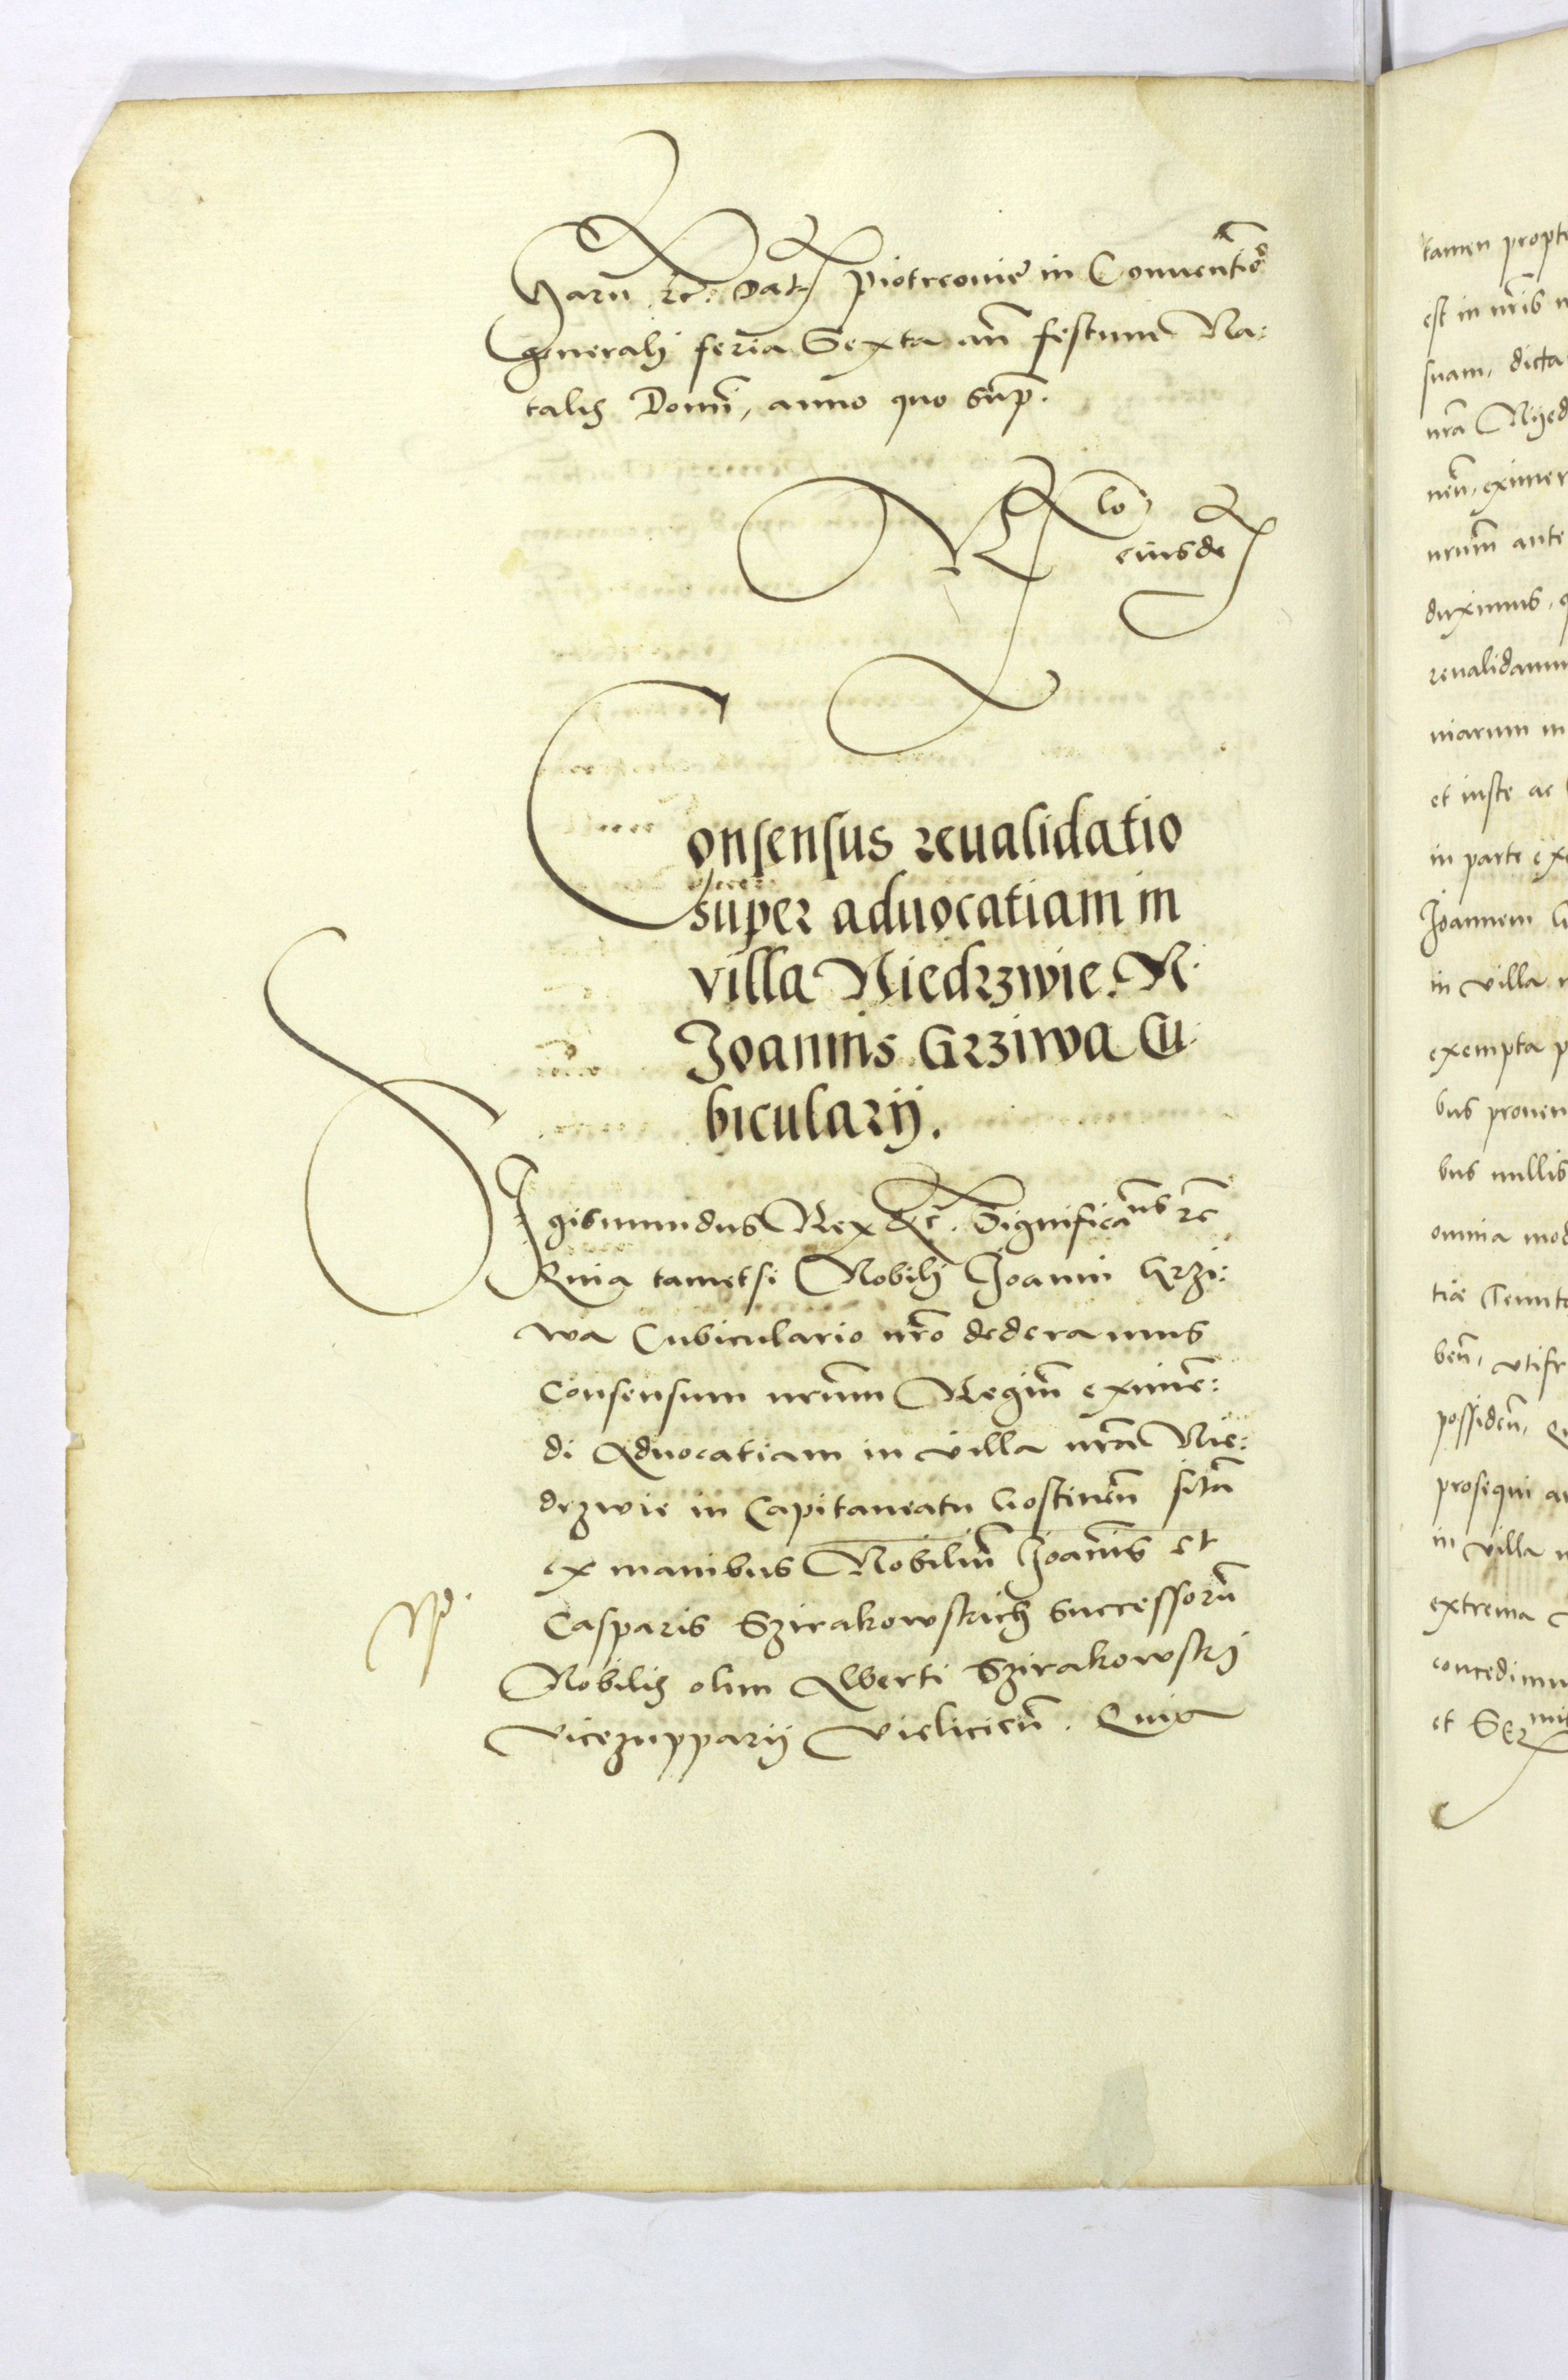 Harū etc. Dat Piotrcovie in Conventiōe
generali feria Sexta añ festum Na:
talis Domī, anno quo supͣ.
Rlo
eiusdē
Consensus revalidatio
super advocatiam in
villa Niedrzwie. N.
Joannis Grziwa Cu
bicularij.
Sigismundus Rex etc. Significamus etc
Quia tametsi Nobili Joanni Grzi:
wa Cubiculario nrō dederamus
consensum nrūm Regiūm eximē:
di Advocatiam in villa nrā Nie:
drzwie in Capitaneatu Gostinēn sitā
ex manibus Nobiliūm Joannis et
Casparis Szirakowskich successorū
Nobilis olim Alberti Szirakowski
vicezupparij Vieliciēn. Quia
tamen propte
est in nrīs
suam, dicta
nrā Nyed
nēn, eximer
nrūm ante
duximus,
revalidamu
niarum in
et iuste ac
in parte exe
Joannem G
in villa n
exempta p
bus proven
bus nullis
omnia mod
tiæ Tenuta
bēn, utifr
possidēn,
prosequi
in villa n
extrema
concedimu
et Ser